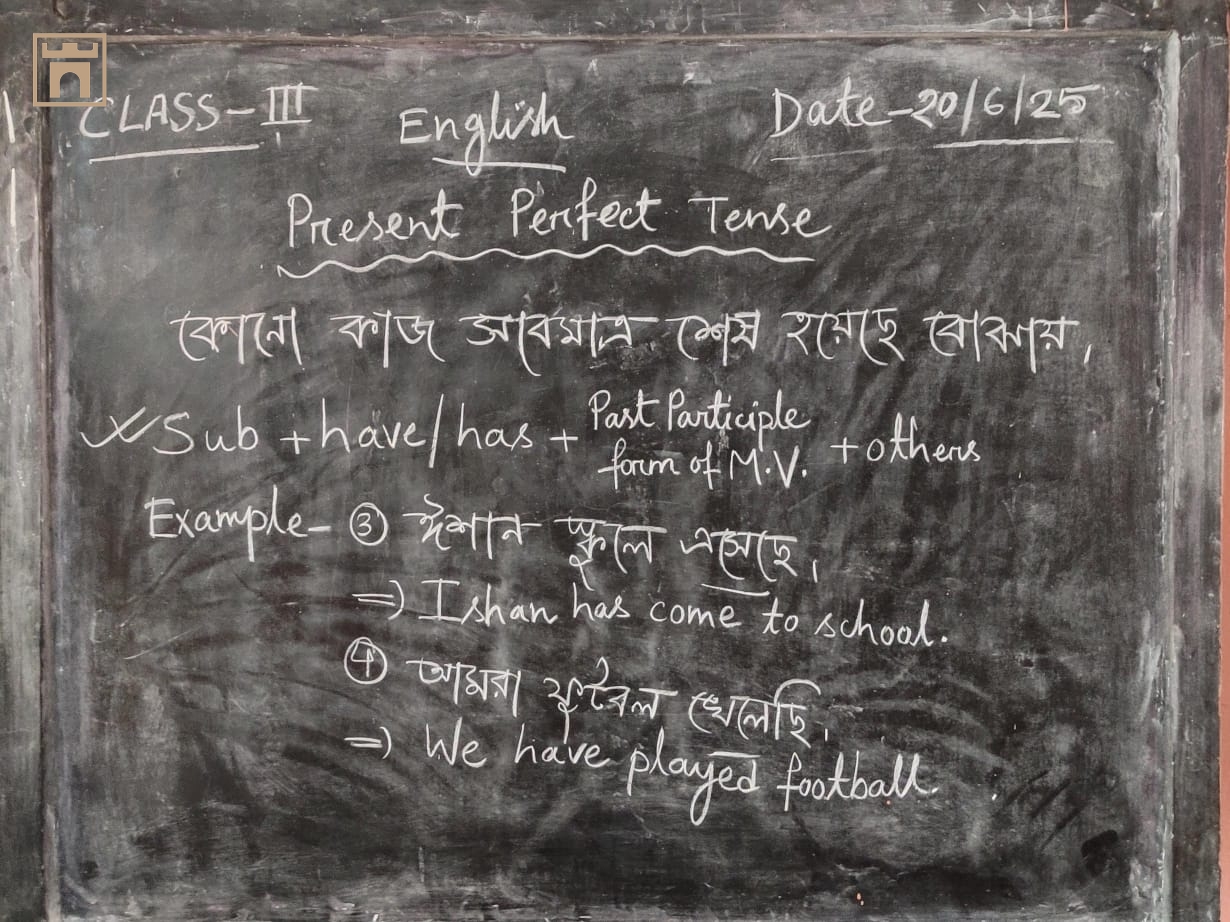 CLASS-III English Date-20/6/25
Present Perfect Tense
কোনো কাজ সবেমাত্র শেষ হয়েছে বোঝায়।
Sub + have/has + Past Participle form of M.V. + others
Example- ③ ঈশান স্কুলে এসেছে।
=> Ishan has come to school.
④ আমরা ফুটবল খেলেছি।
=> We have played football.